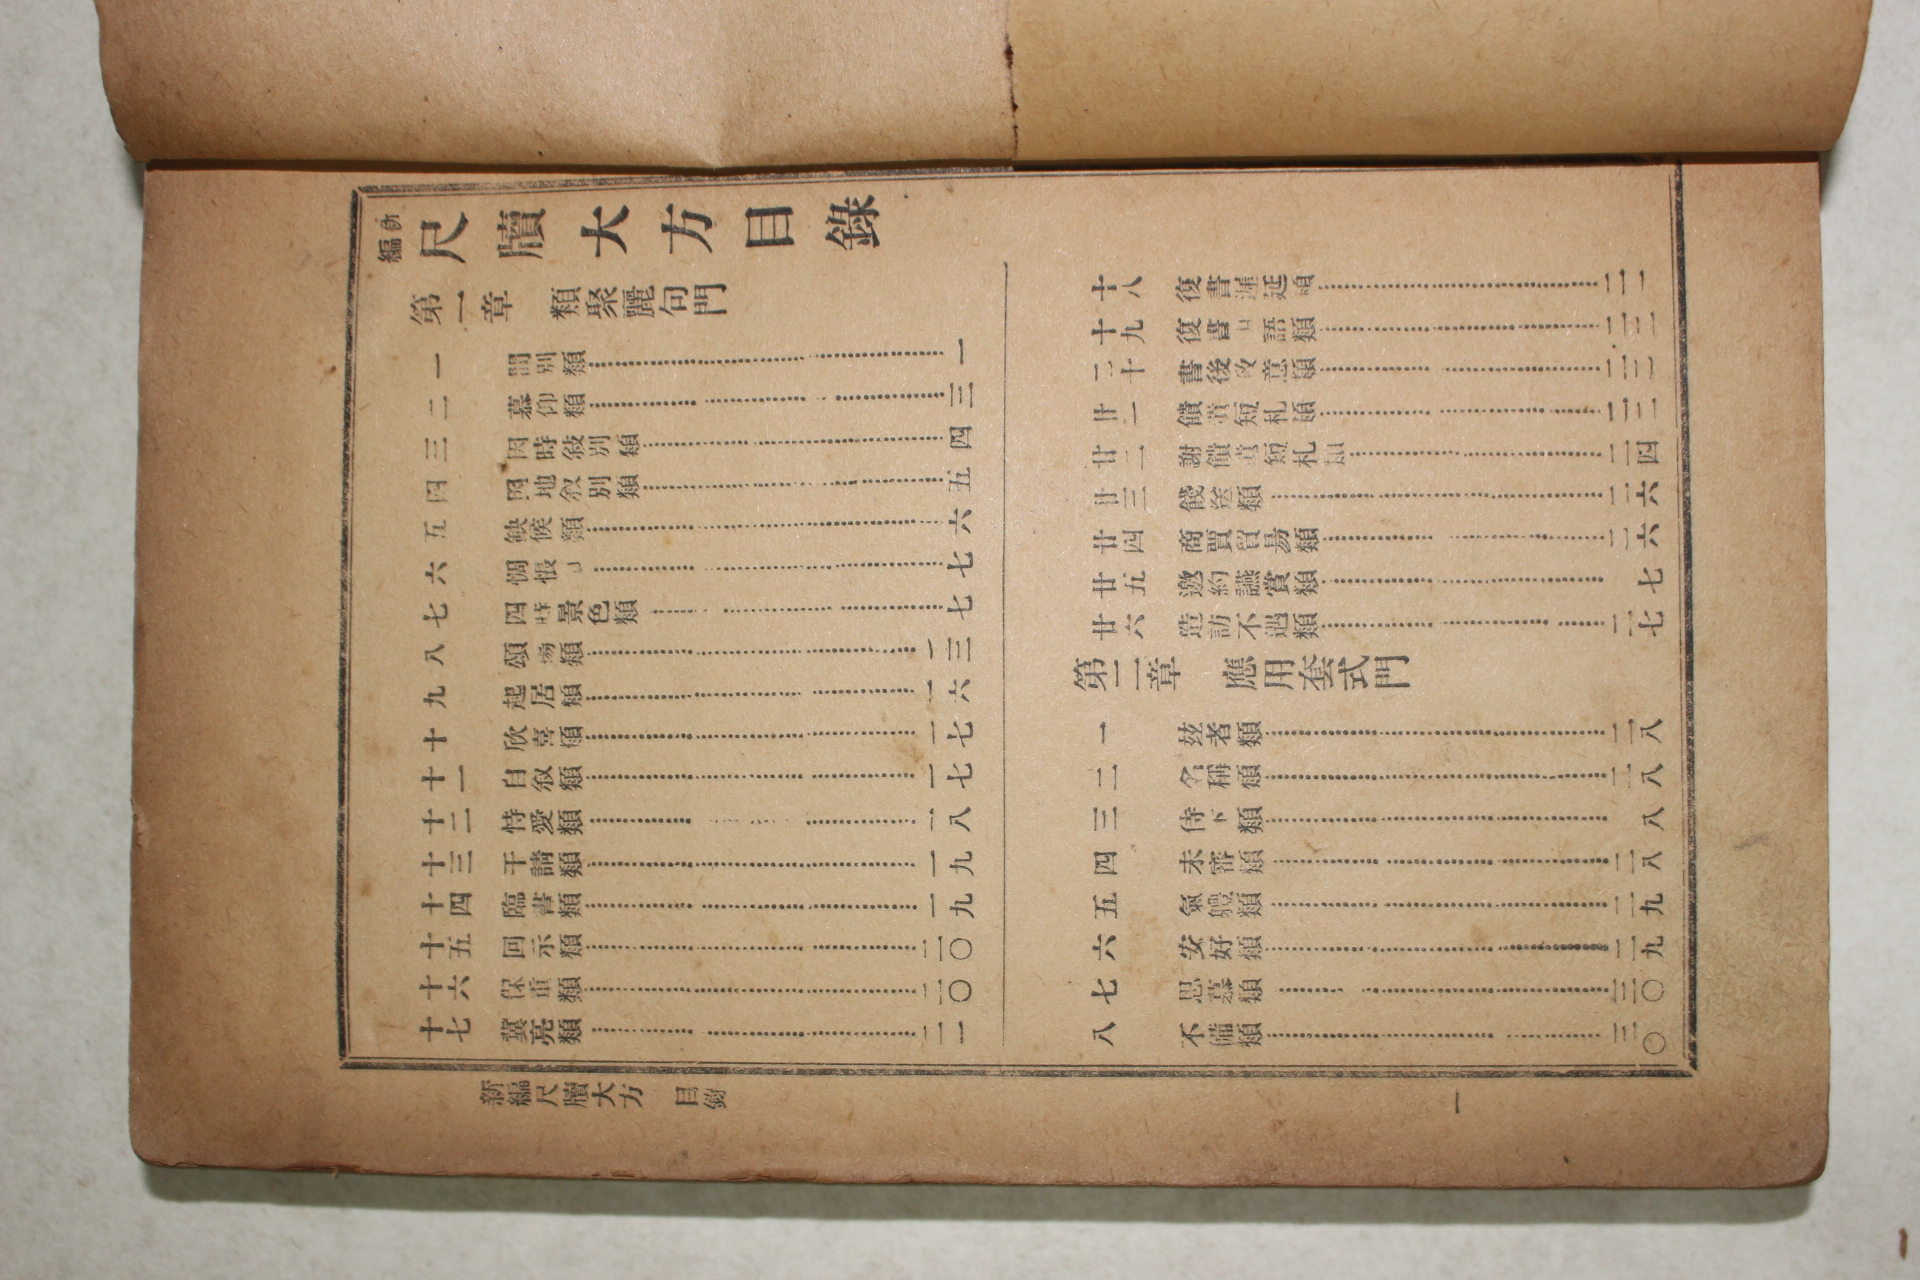 新編 尺牘大方目錄
第一章 類聚麗句門
一 間別類 一
二 慕仰類 三
三 因時敍別類 四
四 因地叙別類 五
五 缺候類 六
六 惆悵 七
七 四時景色類 七
八 頌揚類 一三
九 起居類 一六
十 欣喜類 一七
十一 自叙類 一七
十二 恃愛類 一八
十三 干請類 一九
十四 臨書類 一九
十五 回示類 二〇
十六 保重類 二〇
十七 冀亮類 二一
十八 復書遲延類 二一
十九 復書 語類 二二
二十 書後致意類 二二
廿一 饋遺短札類 二二
廿二 謝饋遺短札類 二四
廿三 餞送類 二六
廿四 商賈貿易類 二六
廿五 邀約讌賞類 七
廿六 造訪不遇類 二七
第二章 應用套式門
一 玆者類 二八
二 名稱類 二八
三 侍下類 八
四 未審類 二八
五 氣軆類 二九
六 安好類 二九
七 思慕類 三〇
八 不備類 三〇
新編尺牘大方 目錄
一